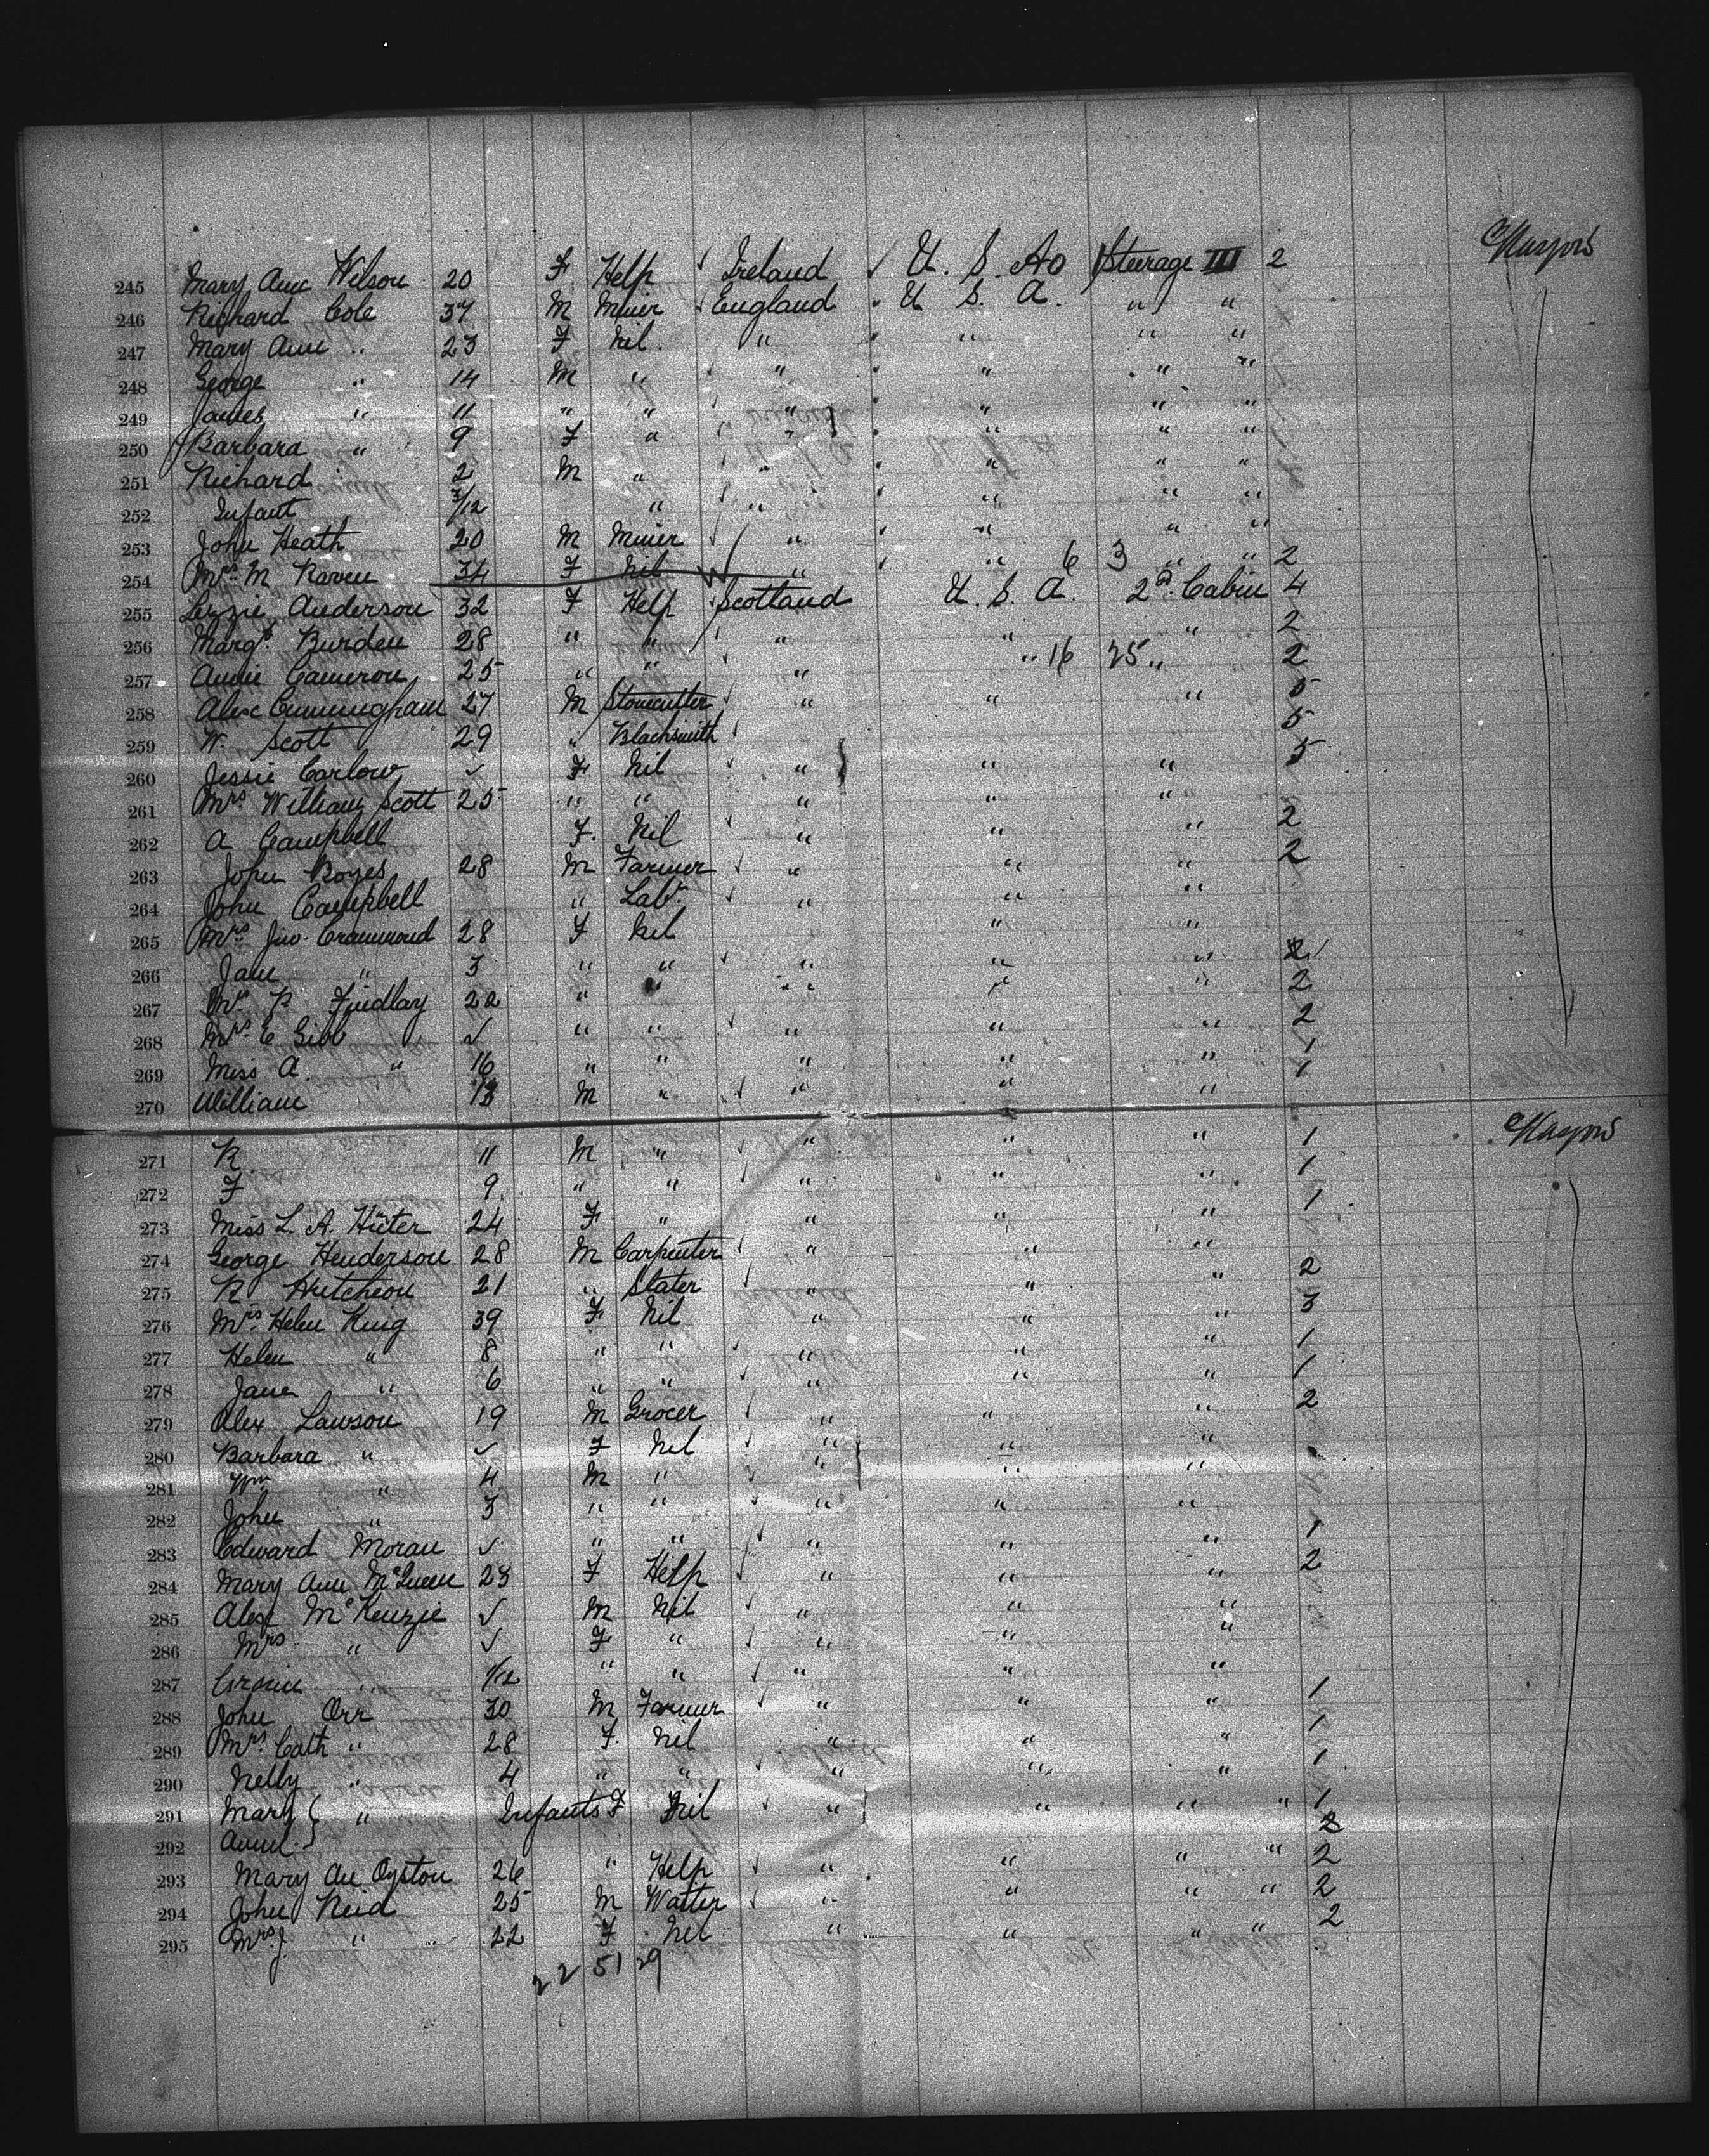 245 Mary Ann Wilson 20 F Help Ireland U. S. Ao Steerage III 2 Glasgow
246 Richard Cole 37 M Miner England U S. A. " "
247 Mary Ann " 23 F Nil " " " "
248 George " 14 M " " " " "
249 James " 11 " " " " " "
250 Barbara " 9 F " " " " "
251 Richard 2 M " " " " "
252 Infant /12 " " " " "
253 John Heath 20 M Miner " " " "
254 Mrs M Raven 34 F Nil " " 6 3 " " 2
255 Lizzie Anderson 32 F Help Scotland U. S. A. 2d Cabin 4
256 Margt Burden 28 " " " " " 2
257 Annie Cameron 25 " " " " 16 25 " 2
258 Alex Cunningham 27 M Stonecutter " " " 5
259 W. Scott 29 " Blacksmith 5
260 Jessie Carlow ✓ F Nil " " " 5
261 Mrs William Scott 25 " " " " "
262 A Campbell F. Nil " " " 2
263 John Boyes 28 M Farmer " " " 2
264 John Campbell " Labr " " "
265 Mrs Jno. Crammond 28 F Nil "
266 Jane " 3 " " " " " 2
267 Mrs R Findlay 22 " " " " " 2
268 Mrs E Gibb ✓ " " " " " 2
269 Miss A. " 16 " " " " " 1
270 William 13 M " " " " 1
271 R. 11 M " " " " 1 Glasgow
272 F 9 " " " " " 1
273 Miss L. A. Hüter 24 F " " " " 1
274 George Henderson 28 M Carpenter " " "
275 R Hutcheon 21 " Slater " " " 2
276 Mrs Helen King 39 F Nil " " " 3
277 Helen " 8 " " " " " 1
278 Jane " 6 " " " " " 1
279 Alex Lawson 19 M Grocer " " " 2
280 Barbara " ✓ F Nil " " "
281 Wm " 4 M " " " "
282 John " 3 " " " " "
283 Edward Moran ✓ " " " " " 1
284 Mary Ann McQueen 23 F Help " " " 2
285 Alex McKenzie ✓ M Nil " " "
286 Mrs " ✓ F " " " "
287 " 1/12 " " " " "
288 John Orr 30 M Farmer " " " 1
289 Mrs Cath " 28 F. Nil " " " 1
290 Nelly " 4 " " " " " 1
291 Mary } " Infants F Nil " " " " 1
292 Annie } 2
293 Mary An Oyston 26 " Help " " " " 2
294 John Reid 25 M Waiter " " " " 2
295 Mrs J. " 22 F Nil " " " " 2
22 51 29